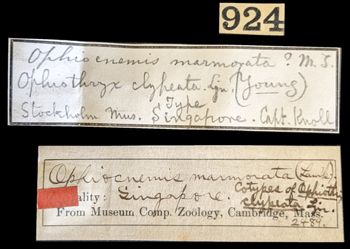 924
Ophiocnemis marmorata? M.T.
Ophiothryx clypeata Ljn. (Young)
Type
Stockholm Mus. Singapore. Capt. Knoll
Ophiocnemis marmorata (Lamk).
Locality: Singapore.
Cotypes of Ophiothrix
clypeata Ljn.
From Museum Comp. Zoology, Cambridge, Mass.
2484.